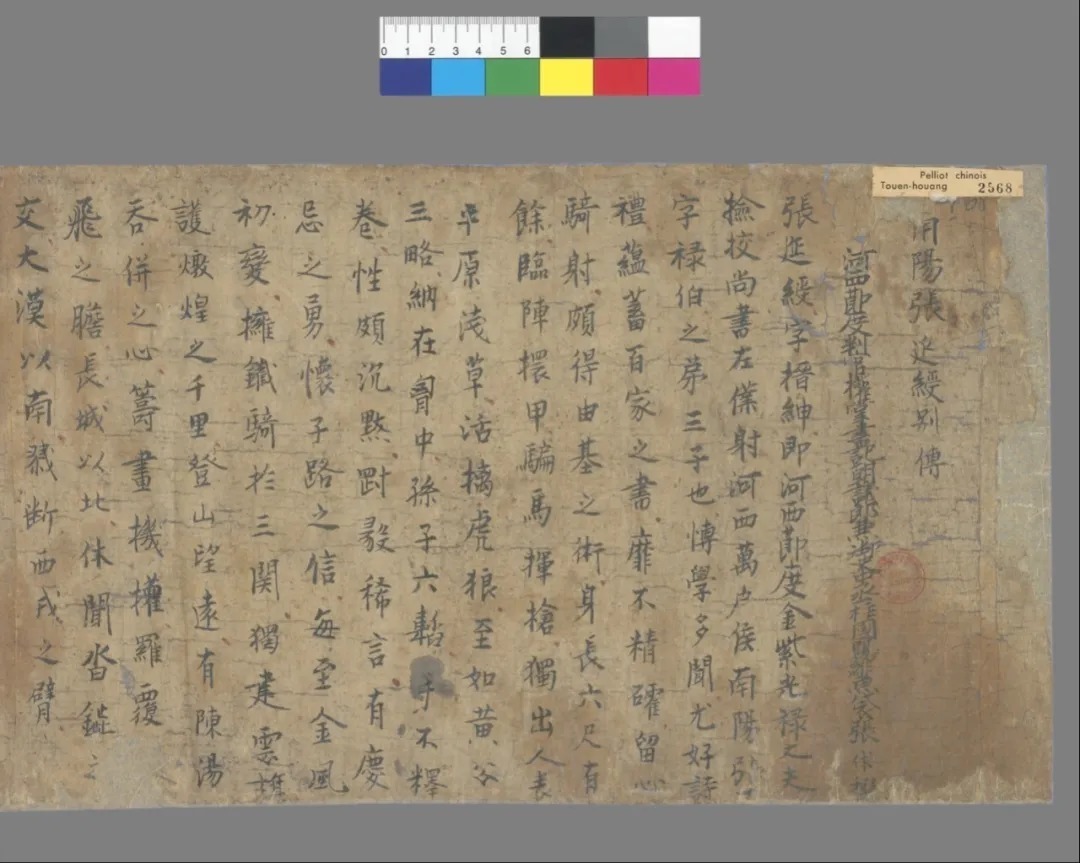 0 1 2 3 4 5 6
Pelliot chinois
Touen-houang 2568
南陽張延綬別傳
河西節度判官權掌書記朝議郎兼御史中丞柱國賜緋魚袋張俅撰
張延綬字搢紳即河西節度金紫光祿大夫
撿挍尚書左僕射河西萬戶侯南陽張
字祿伯之苐三子也博學多聞尤好詩
禮蘊蓄百家之書靡不精確留心
騎射頗得由基之術身長六尺有
餘臨陣擐甲騙馬揮槍獨出人表
平原淺草活擒虎狼至如黃公
三略納在胷中孫子六韜手不釋
卷性頗沉黙剛毅稀言有慶
忌之勇懷子路之信每至金風
初變擁鐵騎於三関獨建雲旗
護燉煌之千里登山望遠有陳湯
吞併之心籌畫機權羅覆
飛之膽長城以北休聞沓鏦之
交大漠以南𢧵断西戎之臂